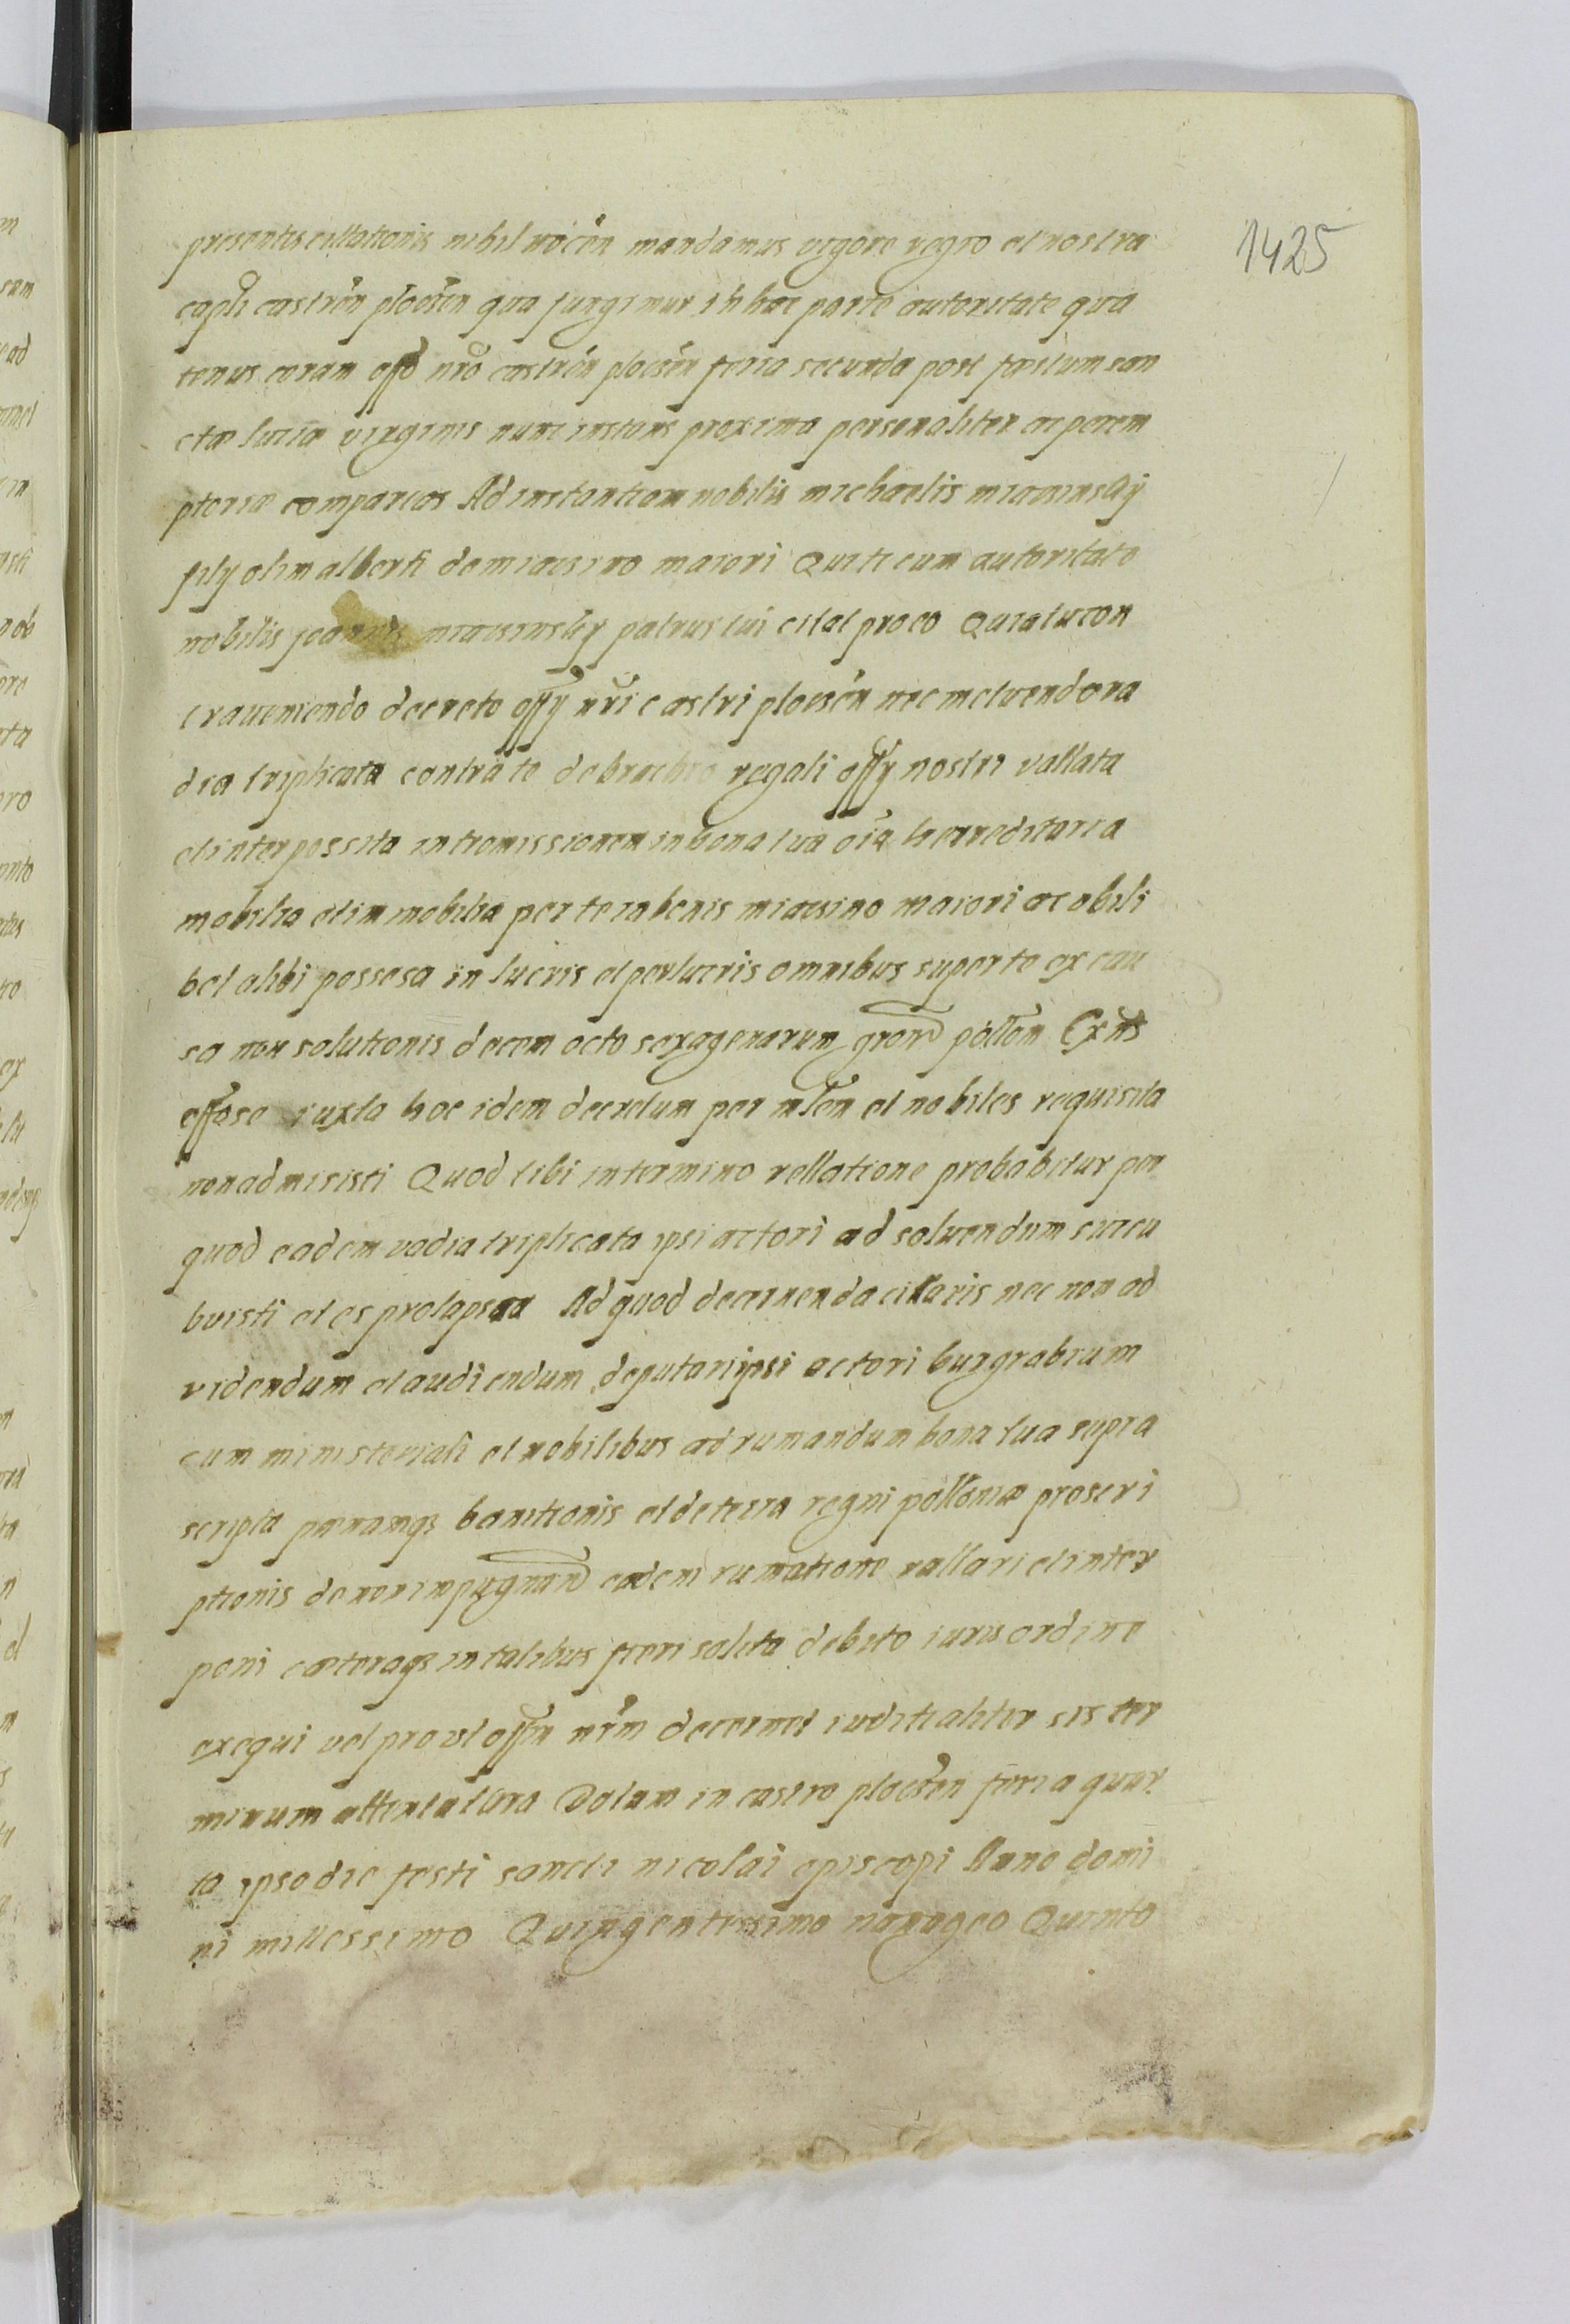 1425
presentis cittationis nihil nocen mandamus vigore regio et nostra
capli castren plocen qua fungimur in hac parte autoritate qua
tenus coram offo nro castren plocen feria secunda post fæstum san
ctæ luciæ virginis nunc instans proxima personaliter ac perem
ptoriæ compareas Ad instantiam nobilis michaelis miacsinsky
filÿ olim alberti de miacsino maiori Qui te cum autoritate
nobilis joannis miacsinsky patrus tui citat pro eo Quia tu con
traueniendo decreto offÿ nri castri plocen nec metuendo va
dia triplicata contra te de brachio regali offÿ nostri vallata
et interpossita intromissionem in bona tua oia hærreditaria
mobilia et immobilia per te in bonis miacsino maiori ac obili
bet alibi possesa in lucris et perlucris omnibus super te ex cau
sa non solutionis decem octo sexagenarum gror pollon Exns
effase iuxta hoc idem decretum per mlem et nobiles requisita
non admisisti Quod tibi in termino rellatione probabitur per
quod eadem vadia triplicata ipsi actori ad solvendum succu
buisti et es prolapsa Ad quod decernenda cittaris nec non ad
videndum et audiendum deputari ipsi actori burgrabium
cum ministeriali et nobilibus ad rumandum bona tua supra
scripta pænamq banitionis et de terra regni polloniæ proscri
ptionis de non impugnand eadem rumatione vallari et inter
poni cæteraq in talibus fieri solita debito iuris ordine
exequi vel pro ut offm nrm decernet iuditialiter sis ter
minum attentatura Datum in castro plocen feria quar
ta ipso die festi sancti nicolai episcopi Anno domi
ni millessimo Quingentessimo nonageo Quinto